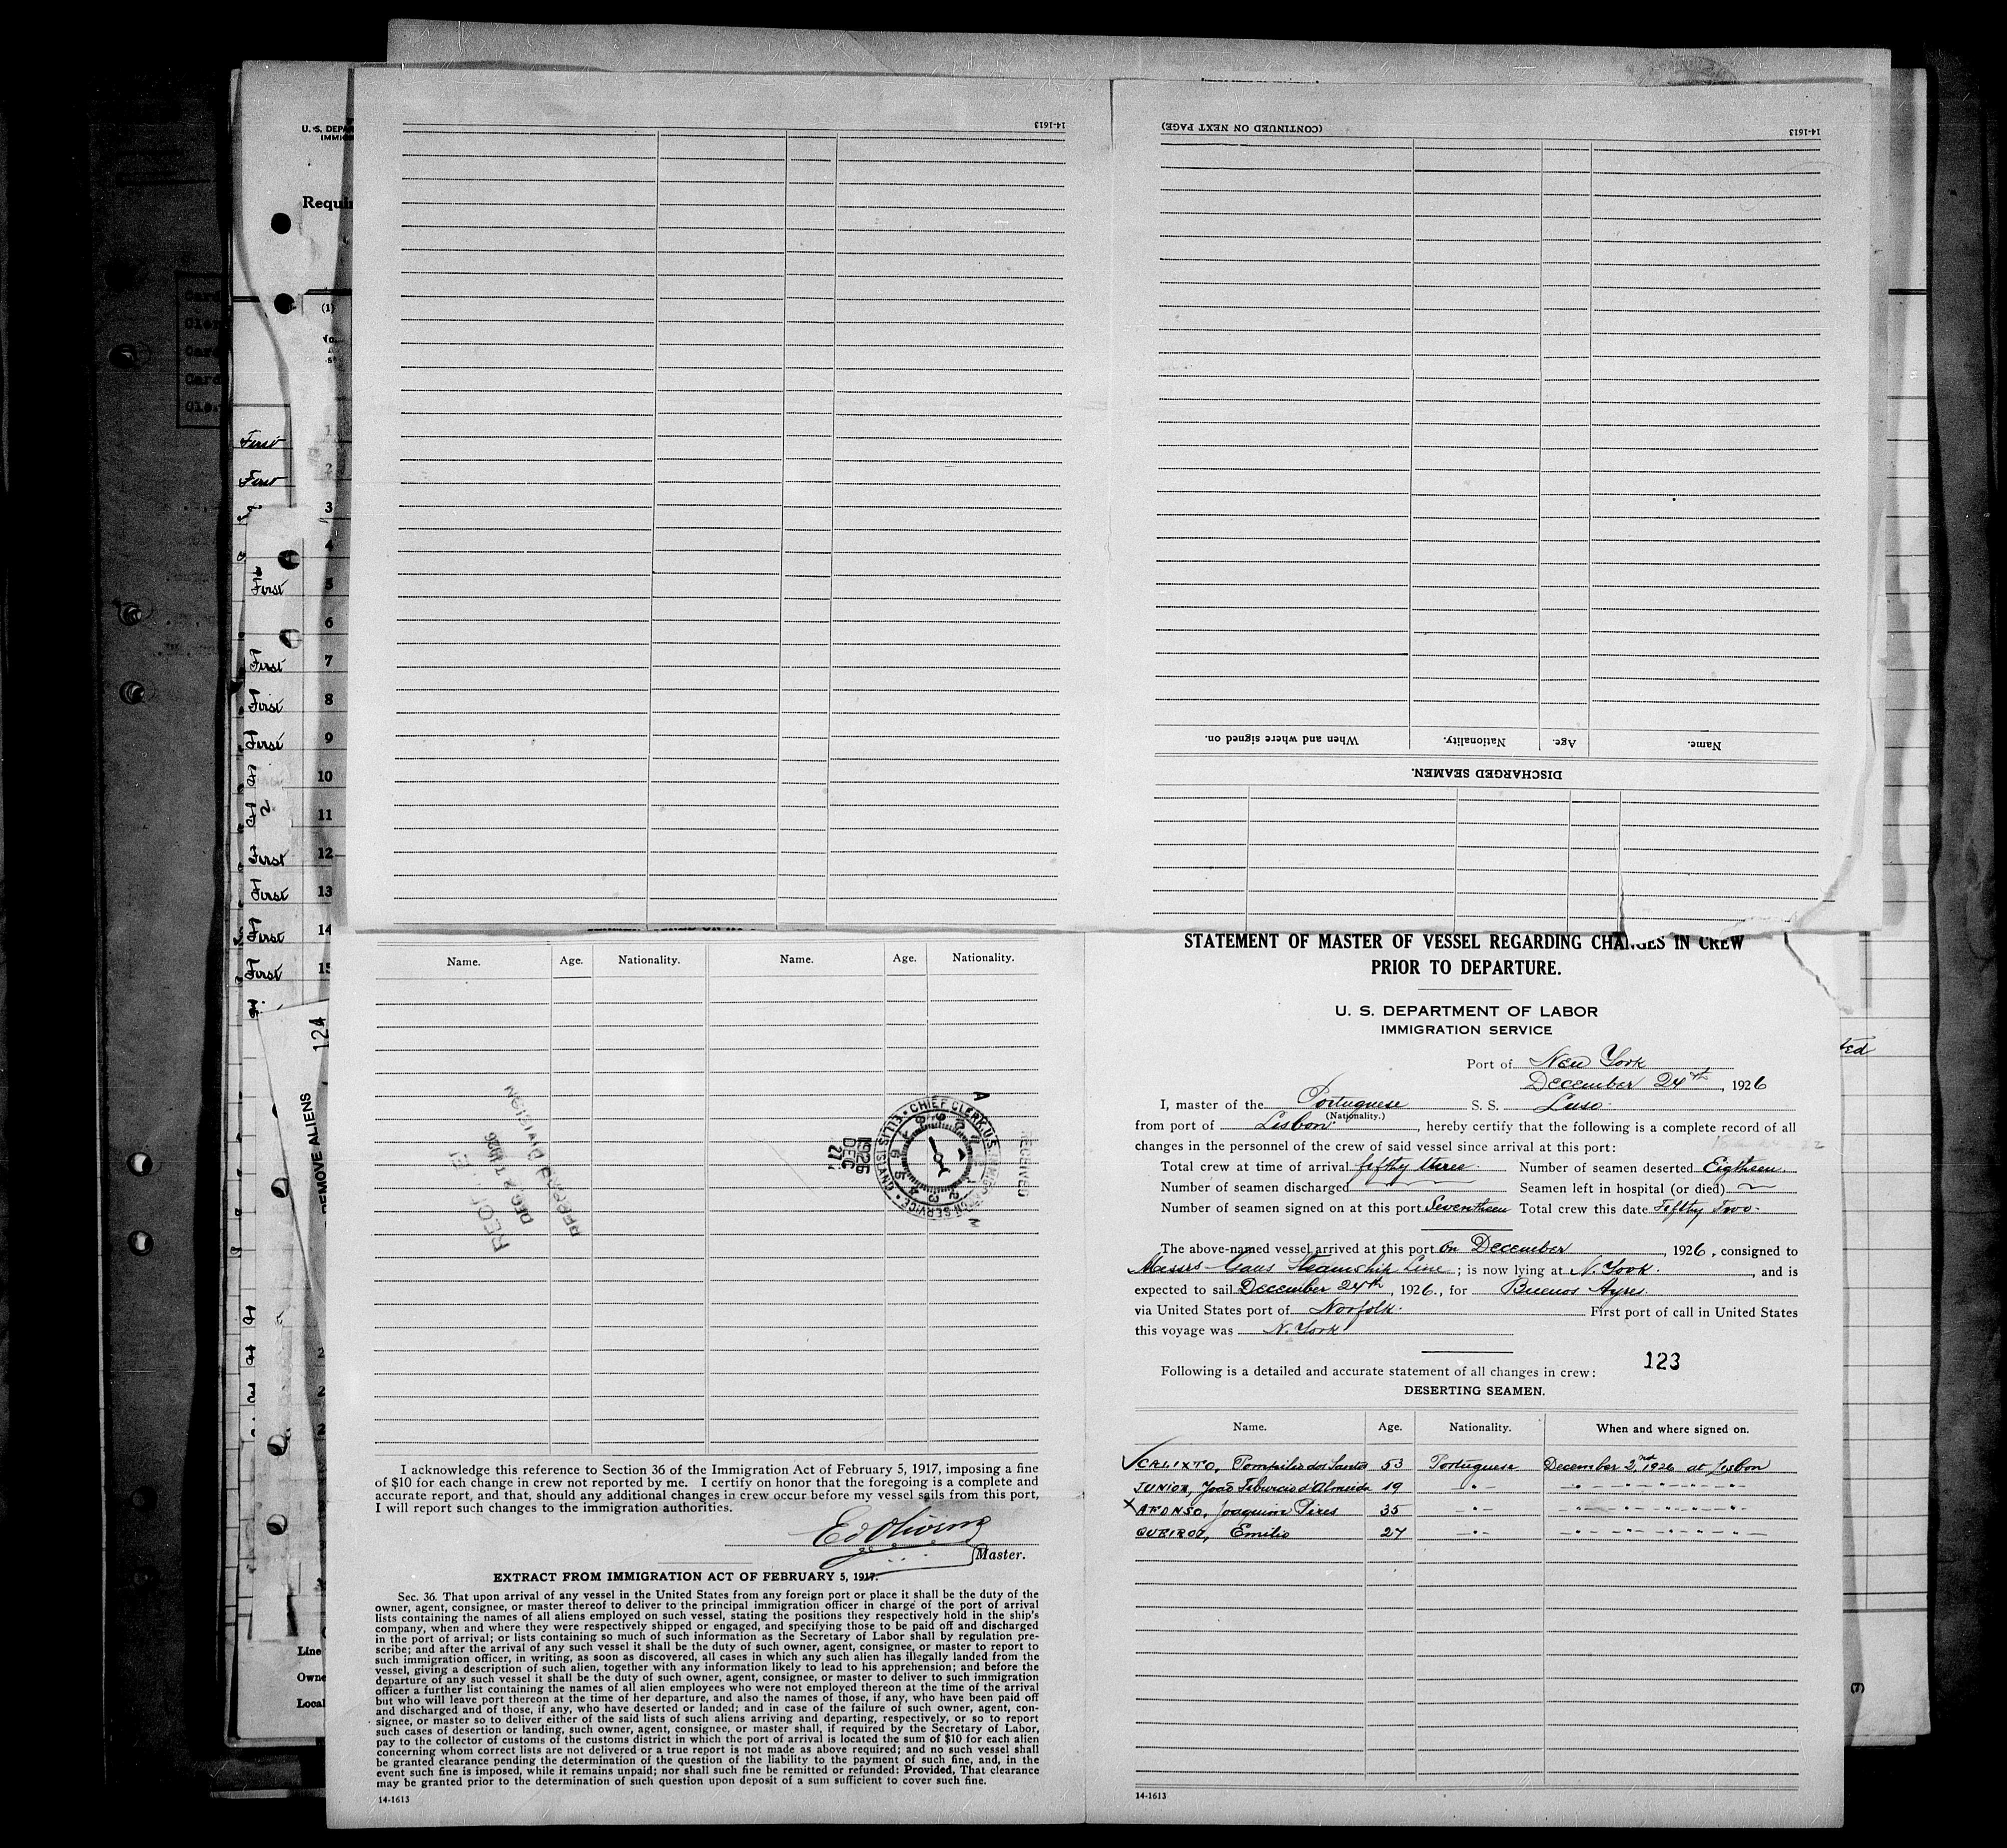 14-1613
(CONTINUED ON NEXT PAGE)
14-1613
When and where signed on.
Nationality.
Age.
Name.
DISCHARGED SEAMEN.
U. S. DEPAR
IMMIG
Requir
(1)
First
First
First
First
First
First
First
First
First
First
1
2
3
4
5
6
7
8
9
10
11
12
13
14
15
124
REMOVE ALIENS
Line
Owne
Local
Name.
Age.
Nationality.
Name.
Age.
Nationality.
RECEIVED
CHIEF CLERK, U.S. IMMIGRATION SERVICE
ELLIS ISLAND
1926
DEC
27
I acknowledge this reference to Section 36 of the Immigration Act of February 5, 1917, imposing a fine
of $10 for each change in crew not reported by me. I certify on honor that the foregoing is a complete and
accurate report, and that, should any additional changes in crew occur before my vessel sails from this port,
I will report such changes to the immigration authorities.
Master.
EXTRACT FROM IMMIGRATION ACT OF FEBRUARY 5, 1917.
Sec. 36. That upon arrival of any vessel in the United States from any foreign port or place it shall be the duty of the
owner, agent, consignee, or master thereof to deliver to the principal immigration officer in charge of the port of arrival
lists containing the names of all aliens employed on such vessel, stating the positions they respectively hold in the ship's
company, when and where they were respectively shipped or engaged, and specifying those to be paid off and discharged
in the port of arrival; or lists containing so much of such information as the Secretary of Labor shall by regulation pre-
scribe; and after the arrival of any such vessel it shall be the duty of such owner, agent, consignee, or master to report to
such immigration officer, in writing, as soon as discovered, all cases in which any such alien has illegally landed from the
vessel, giving a description of such alien, together with any information likely to lead to his apprehension; and before the
departure of any such vessel it shall be the duty of such owner, agent, consignee, or master to deliver to such immigration
officer a further list containing the names of all alien employees who were not employed thereon at the time of the arrival
but who will leave port thereon at the time of her departure, and also the names of those, if any, who have been paid off
and discharged and of those, if any, who have deserted or landed; and in case of the failure of such owner, agent, con-
signee, or master so to deliver either of the said lists of such aliens arriving and departing, respectively, or so to report
such cases of desertion or landing, such owner, agent, consignee, or master shall, if required by the Secretary of Labor,
pay to the collector of customs of the customs district in which the port of arrival is located the sum of $10 for each alien
concerning whom correct lists are not delivered or a true report is not made as above required; and no such vessel shall
be granted clearance pending the determination of the question of the liability to the payment of such fine, and, in the
event such fine is imposed, while it remains unpaid; nor shall such fine be remitted or refunded: Provided, That clearance
may be granted prior to the determination of such question upon deposit of a sum sufficient to cover such fine.
14-1613
STATEMENT OF MASTER OF VESSEL REGARDING CHANGES IN CREW
PRIOR TO DEPARTURE.
U. S. DEPARTMENT OF LABOR
IMMIGRATION SERVICE
Port of New York
December 24th, 1926
I, master of the Portuguese S. S. Luso
(Nationality.)
from port of Lisbon, hereby certify that the following is a complete record of all
changes in the personnel of the crew of said vessel since arrival at this port:
Total crew at time of arrival fifthy three. Number of seamen deserted Eigtheen.
Number of seamen discharged Seamen left in hospital (or died)
Number of seamen signed on at this port Seventheen Total crew this date Fifthy Two.
The above-named vessel arrived at this port on December, 1926, consigned to
Messrs Gans Steamship Line; is now lying at N. York., and is
expected to sail December 24th, 1926., for Buenos Ayres
via United States port of Norfolk. First port of call in United States
this voyage was N. York
123
Following is a detailed and accurate statement of all changes in crew:
DESERTING SEAMEN.
Name. Age. Nationality. When and where signed on.
CALIXTO, Pompilio dos Santos 53 Portuguese December 2,nd 1926 at Lisbon
JUNIOR, João Tiburcio d'Almeida 19 -"- -"- -"-
AFONSO, Joaquim Pires 35 -"- -"- -"-
QUEIROZ, Emilio 27 -"- -"- -"-
14-1613